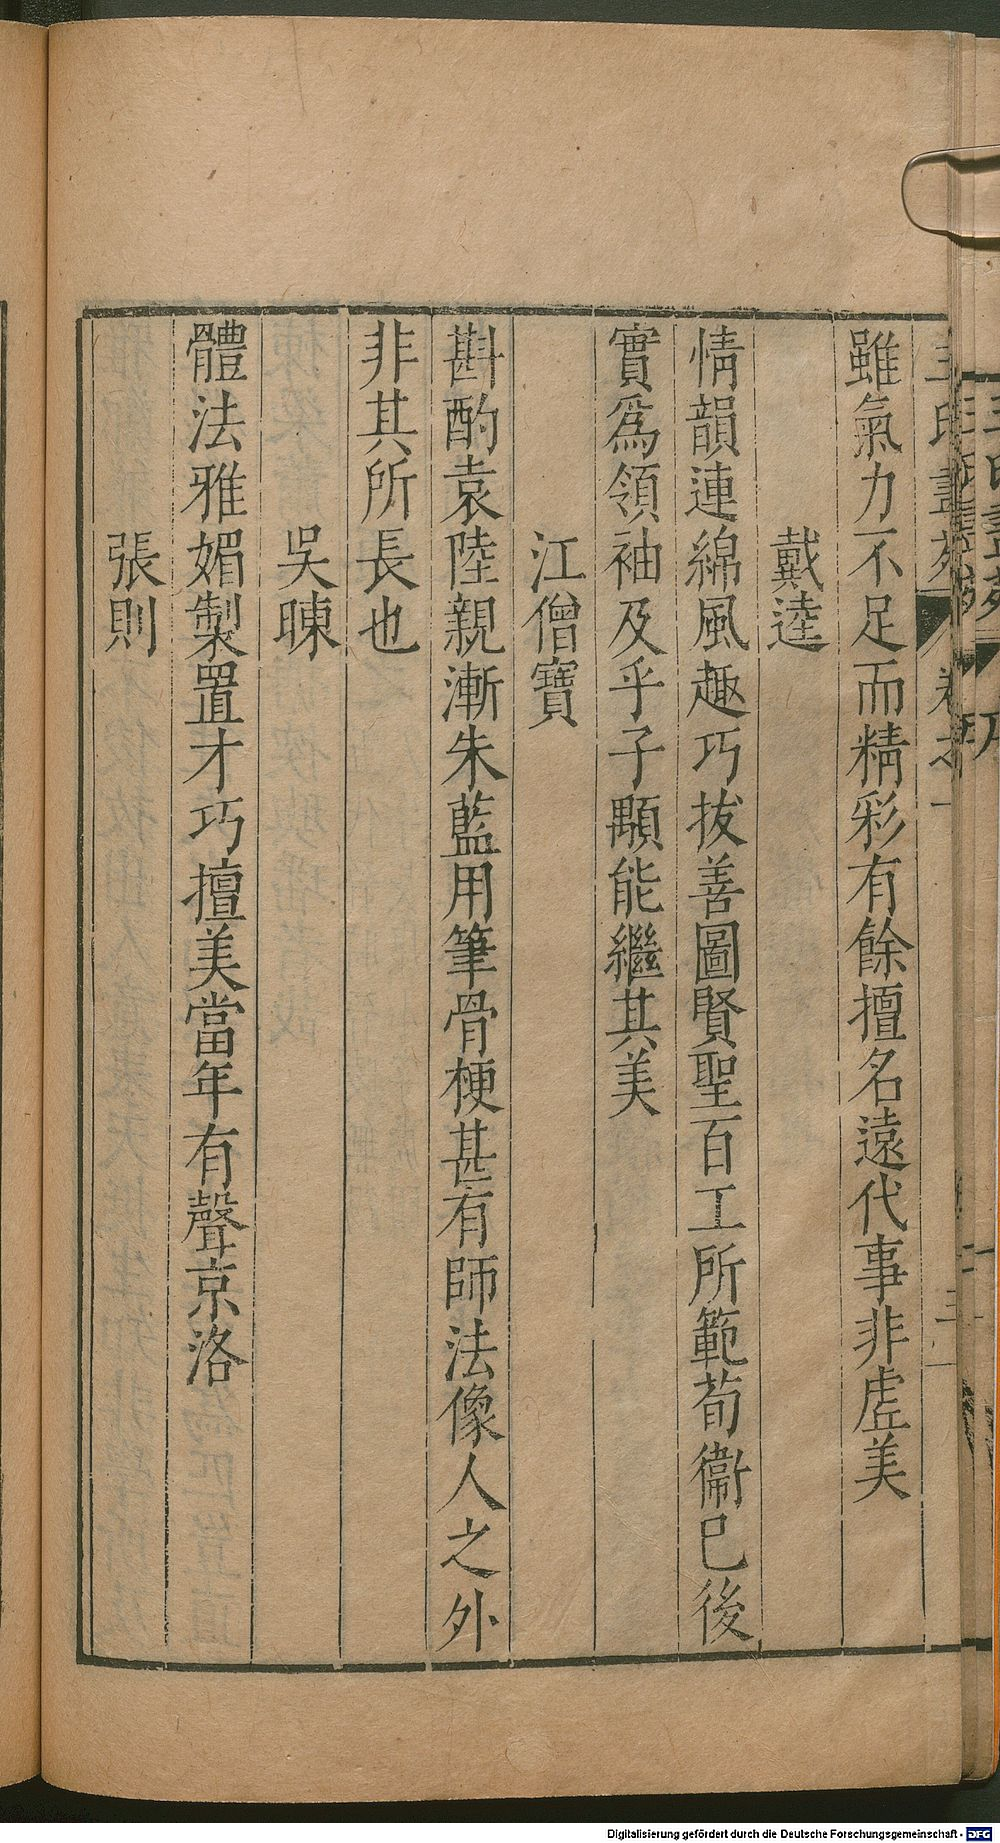 雖氣力不足而精彩有餘擅名遠代事非虛美
戴逵
情韻連綿風趣巧拔善圖賢聖百工所範荀衞已後
實爲領袖及乎子顒能繼其美
江僧寶
斟酌袁陸親漸朱藍用筆骨梗甚有師法像人之外
非其所長也
吳暕
體法雅媚製置才巧擅美當年有聲京洛
張則
Digitalisierung gefördert durch die Deutsche Forschungsgemeinschaft - DFG